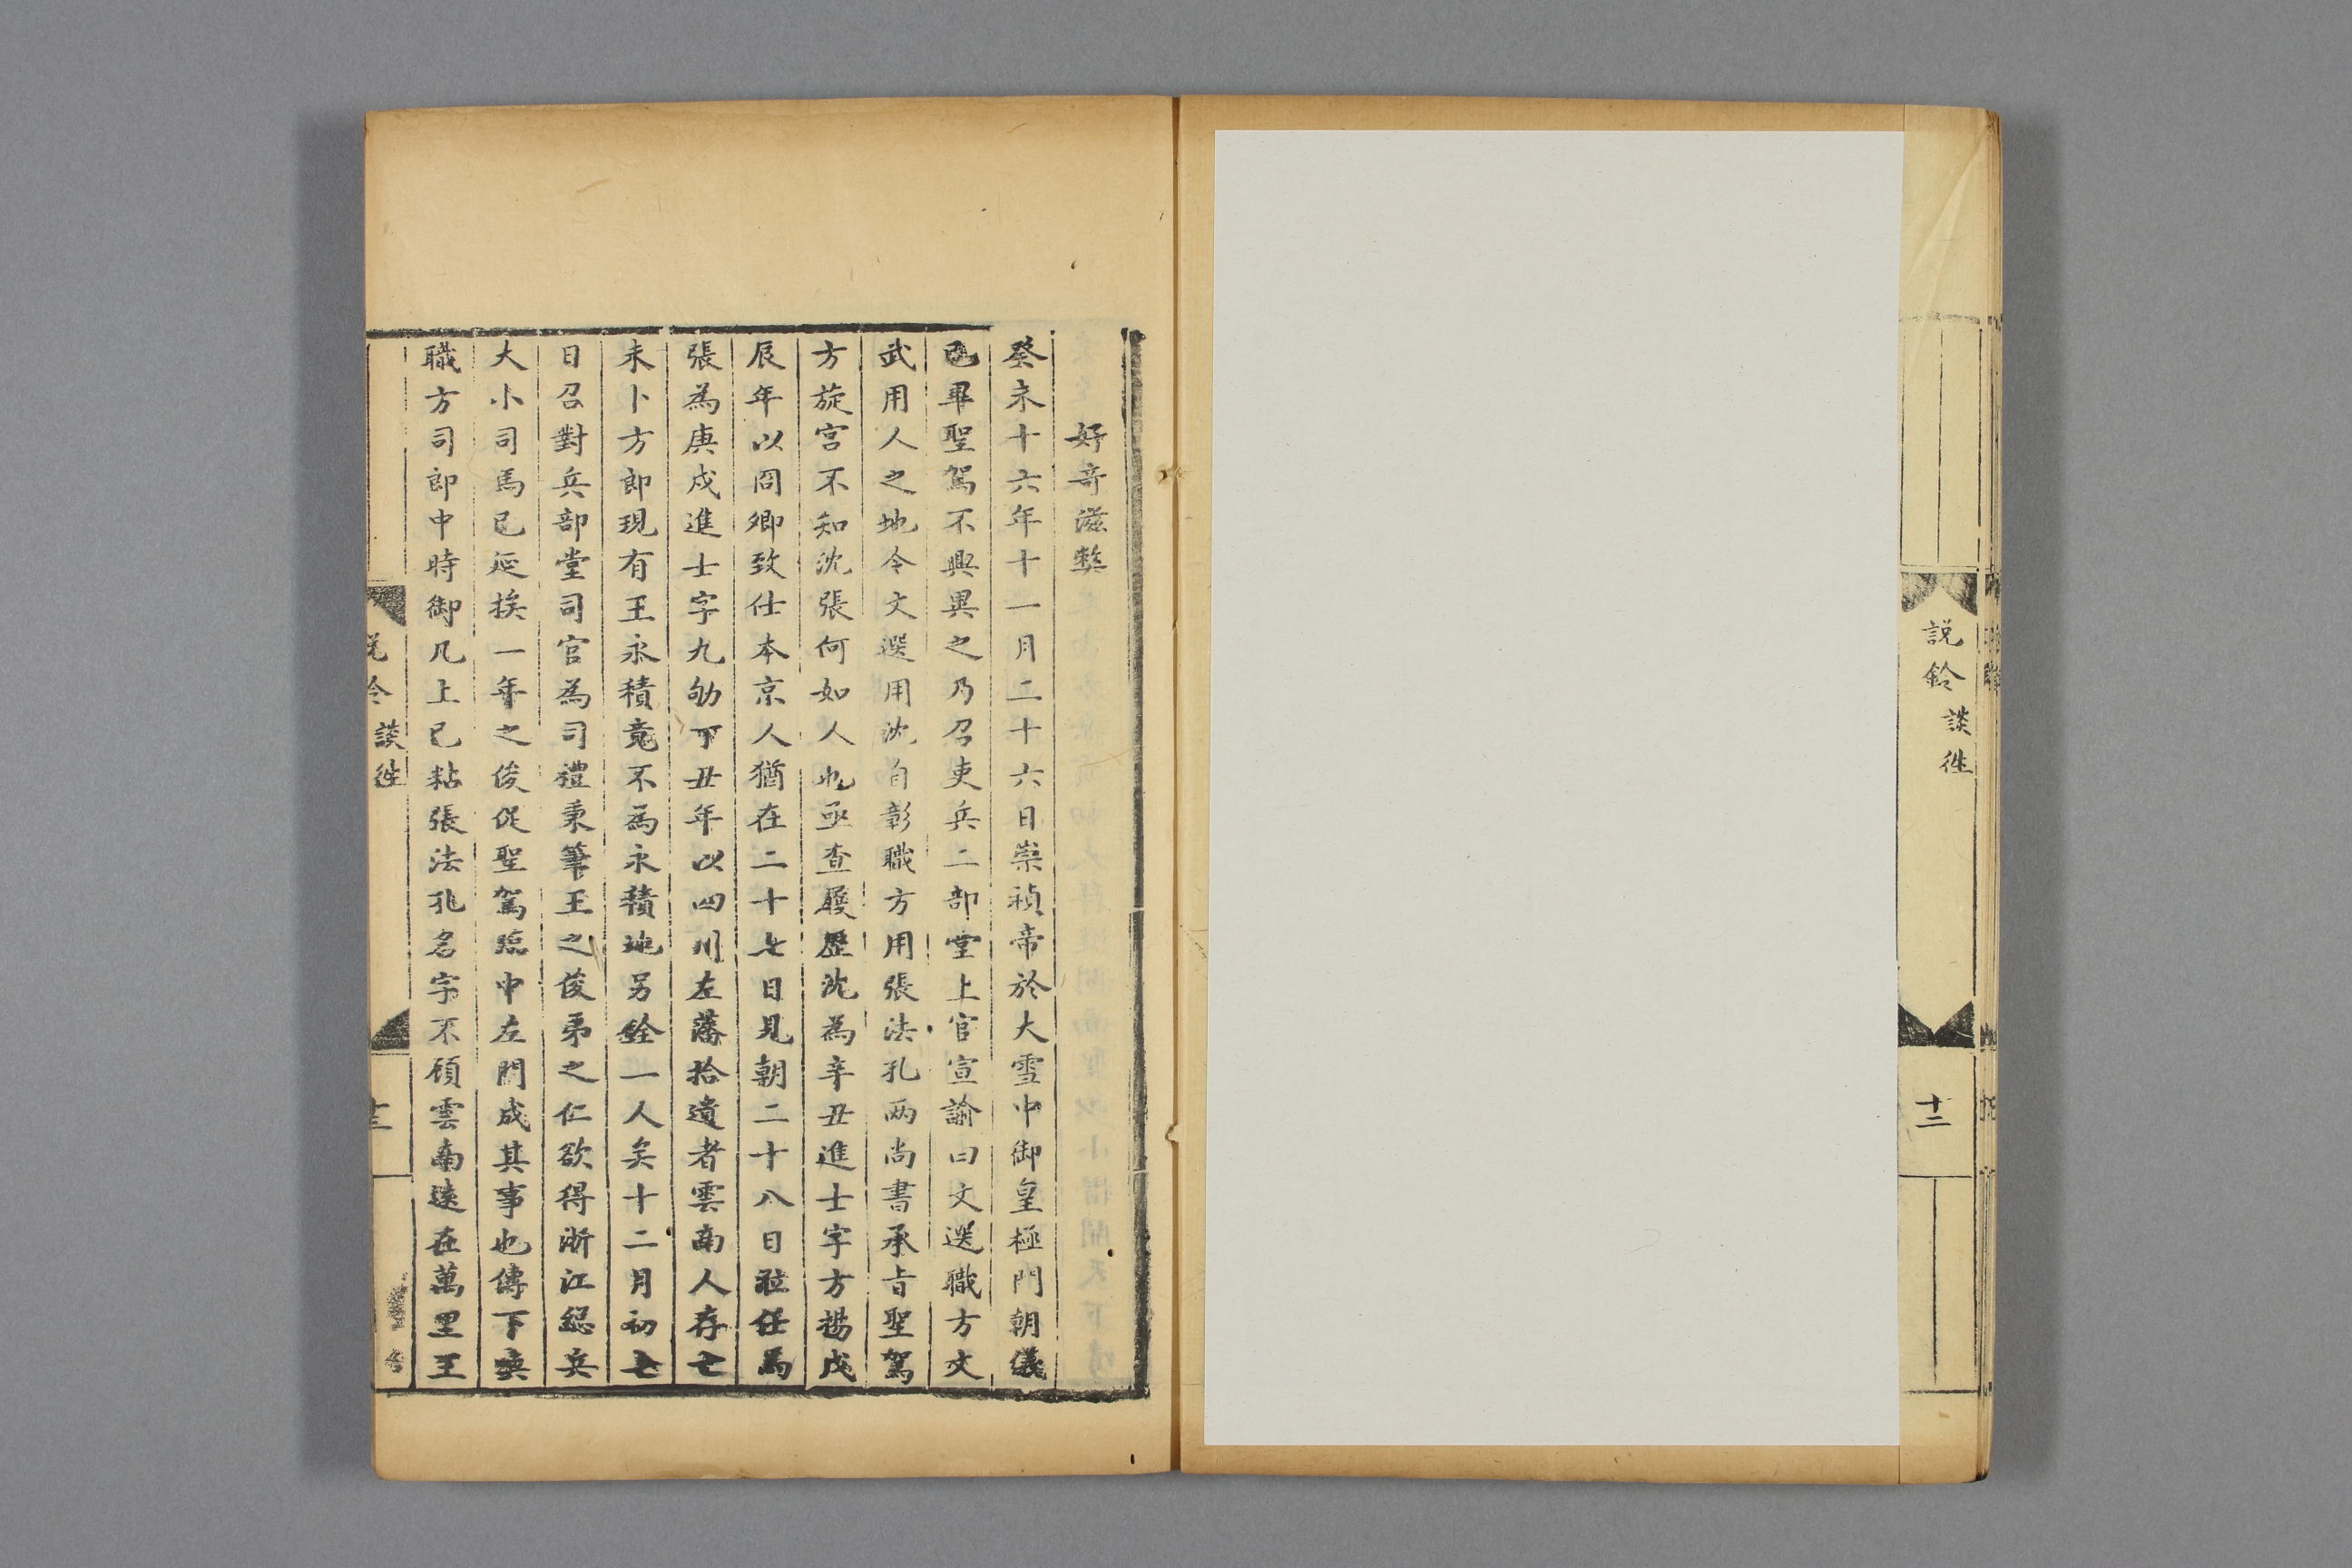 說鈴 談徃
十二
好奇滋弊
癸未十六年十一月二十六日崇禎帝於大雪中御皇極門朝儀
已畢聖駕不興異之乃召吏兵二部堂上官宣諭曰文選職方文
武用人之地令文選用沈自彰職方用張法孔两尚書承旨聖駕
方旋宮不知沈張何如人也亟查履歷沈為辛丑進士字方揚戊
辰年以冏卿致仕本京人猶在二十七日見朝二十八日蒞任為
張為庚戌進士字九劬丁丑年以四川左藩拾遺者雲南人存亡
未卜方郎現有王永積竟不為永積地另銓一人矣十二月初七
日召對兵部堂司官為司禮秉筆王之俊弟之仁欲得浙江總兵
大小司馬已延挨一年之俊促聖駕臨中左門成其事也傳下喚
職方司郎中時御几上已粘張法孔名字不顧雲南遠在萬里王
談徃
十三